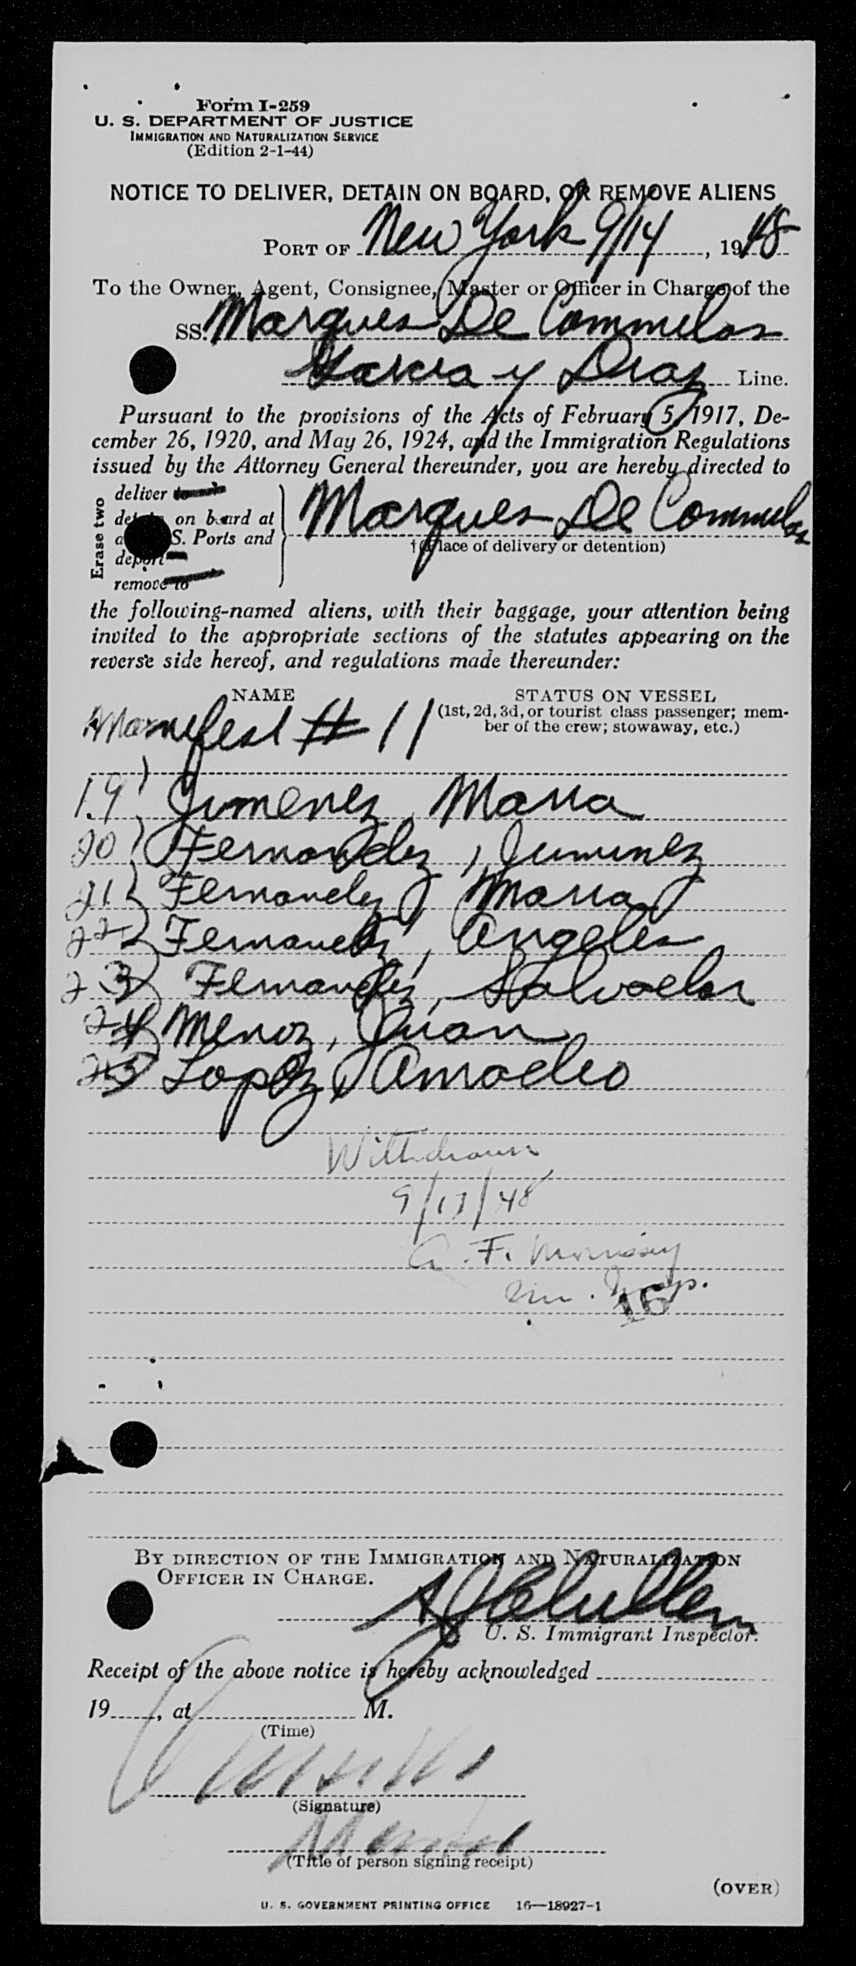 Form I-259
U. S. DEPARTMENT OF JUSTICE
IMMIGRATION AND NATURALIZATION SERVICE
(Edition 2-1-44)
NOTICE TO DELIVER, DETAIN ON BOARD, OR REMOVE ALIENS
PORT OF New York 9/14, 1948
To the Owner, Agent, Consignee, Master or Officer in Charge of the
SS. Marques De Commelas
Garcia y Diaz Line.
Pursuant to the provisions of the Acts of February 5, 1917, De-
cember 26, 1920, and May 26, 1924, and the Immigration Regulations
issued by the Attorney General thereunder, you are hereby directed to
Erase two
deliver to
on board at
S. Ports and
deport
remove to
Marques De Commelas
†(Place of delivery or detention)
the following-named aliens, with their baggage, your attention being
invited to the appropriate sections of the statutes appearing on the
reverse side hereof, and regulations made thereunder:
NAME
STATUS ON VESSEL
(1st, 2d, 3d, or tourist class passenger; mem-
ber of the crew; stowaway, etc.)
Manifest # 11
19) Jimenez, Maria
20) Fernandez, Juminez
21) Fernandez, Maria
22) Fernandez, Angeles
23) Fernandez, Salvador
24) Menoz, Juan
25) Lopez, Amadeo
Withdrawn
9/17/48
A. F. Morrissey
Im. Insp.
16
BY DIRECTION OF THE IMMIGRATION AND NATURALIZATION
OFFICER IN CHARGE.
U. S. Immigrant Inspector.
Receipt of the above notice is hereby acknowledged
19, at M.
(Time)
(Signature)
(Title of person signing receipt)
(OVER)
U. S. GOVERNMENT PRINTING OFFICE 16—18927-1